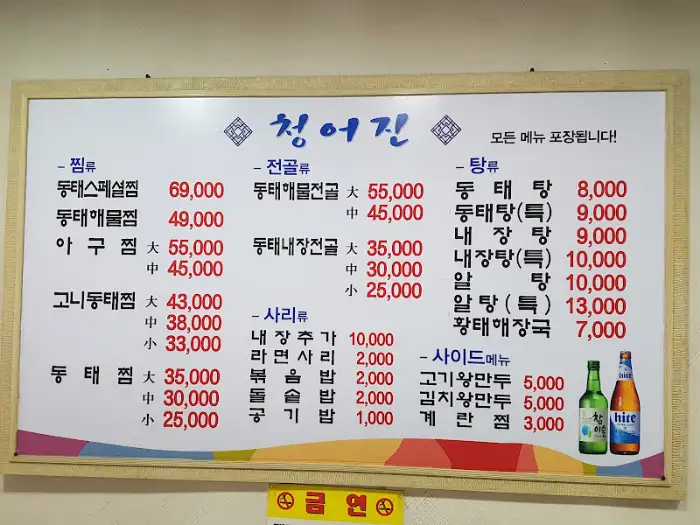 청어진
모든 메뉴 포장됩니다!
- 찜류
동태스페셜찜 69,000
동태해물찜 49,000
아구찜 大 55,000
中 45,000
고니동태찜 大 43,000
中 38,000
小 33,000
동태찜 大 35,000
中 30,000
小 25,000
- 전골류
동태해물전골 大 55,000
中 45,000
동태내장전골 大 35,000
中 30,000
小 25,000
- 사리류
내장추가 10,000
라면사리 2,000
볶음밥 2,000
돌솥밥 2,000
공기밥 1,000
- 탕류
동태탕 8,000
동태탕(특) 9,000
내장탕 9,000
내장탕(특) 10,000
알탕 10,000
알탕(특) 13,000
황태해장국 7,000
- 사이드메뉴
고기왕만두 5,000
김치왕만두 5,000
계란찜 3,000
참이슬
hite
금연